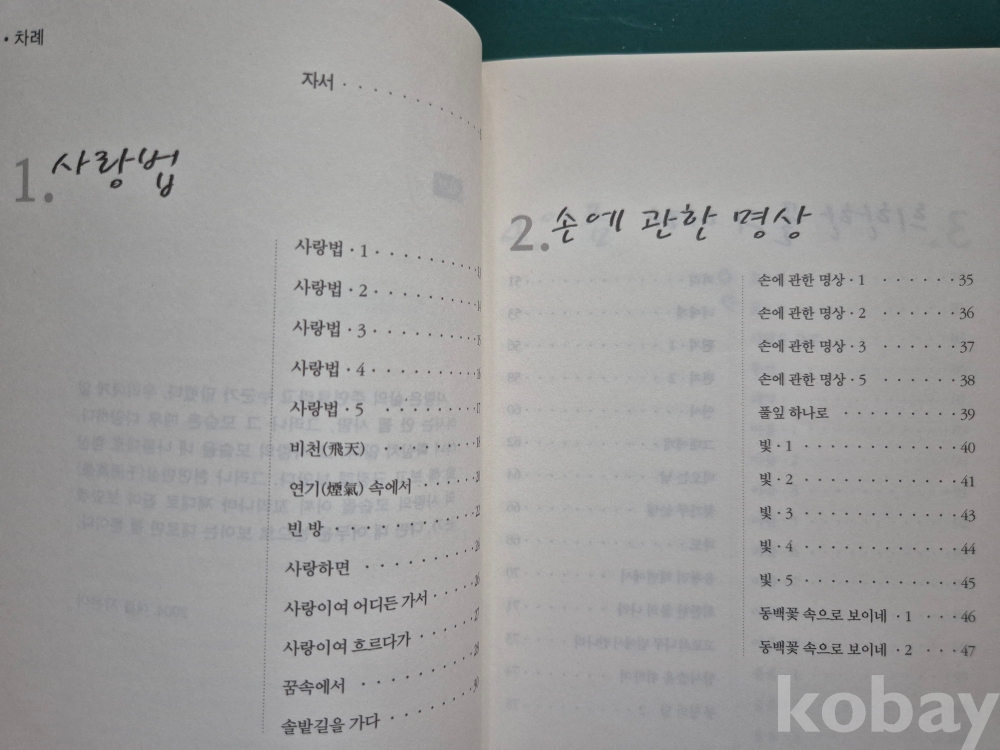 · 차례
자서 · · · · · · · · ·
1. 사랑법
사랑법 · 1 · · · · · · · ·
사랑법 · 2 · · · · · · · ·
사랑법 · 3 · · · · · · · ·
사랑법 · 4 · · · · · · · ·
사랑법 · 5 · · · · · · · ·
비천(飛天) · · · · · · · ·
연기(煙氣) 속에서 · · · · ·
빈 방 · · · · · · · · · ·
사랑하면 · · · · · · · · ·
사랑이여 어디든 가서 · · · ·
사랑이여 흐르다가 · · · · ·
꿈속에서 · · · · · · · · ·
솔밭길을 가다 · · · · · · ·
2. 손에 관한 명상
손에 관한 명상 · 1 · · · · · · 35
손에 관한 명상 · 2 · · · · · · 36
손에 관한 명상 · 3 · · · · · · 37
손에 관한 명상 · 5 · · · · · · 38
풀잎 하나로 · · · · · · · · · 39
빛 · 1 · · · · · · · · · · · · 40
빛 · 2 · · · · · · · · · · · · 41
빛 · 3 · · · · · · · · · · · · 43
빛 · 4 · · · · · · · · · · · · 44
빛 · 5 · · · · · · · · · · · · 45
동백꽃 속으로 보이네 · 1 · · · 46
동백꽃 속으로 보이네 · 2 · · · 47
kobay